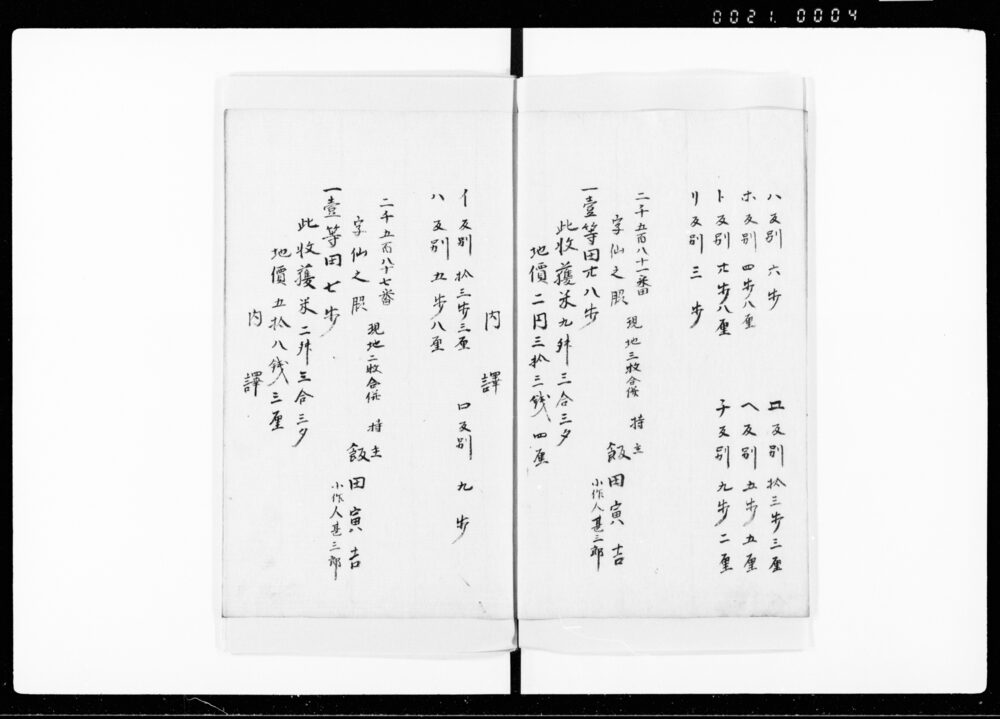 0021.0004
ハ反別 六歩 ニ反別 拾三歩三厘
ホ反別 四歩八厘 ヘ反別 五歩五厘
ト反別 廿歩八厘 チ反別 九歩二厘
リ反別 三歩
二千五百八十一番田
字仙之腰 現地三枚合併 持主 飯田寅吉
小作人甚三郎
一壹等田廿八歩
此収獲米九舛三合三夕
地價二円三拾三銭四厘
内譯
イ反別 拾三歩三厘 ロ反別 九歩
ハ反別 五歩八厘
二千五百八十七番
字仙之腰 現地二枚合併 持主 飯田寅吉
小作人甚三郎
一壹等田七歩
此収獲米二舛三合三夕
地價五拾八銭三厘
内譯